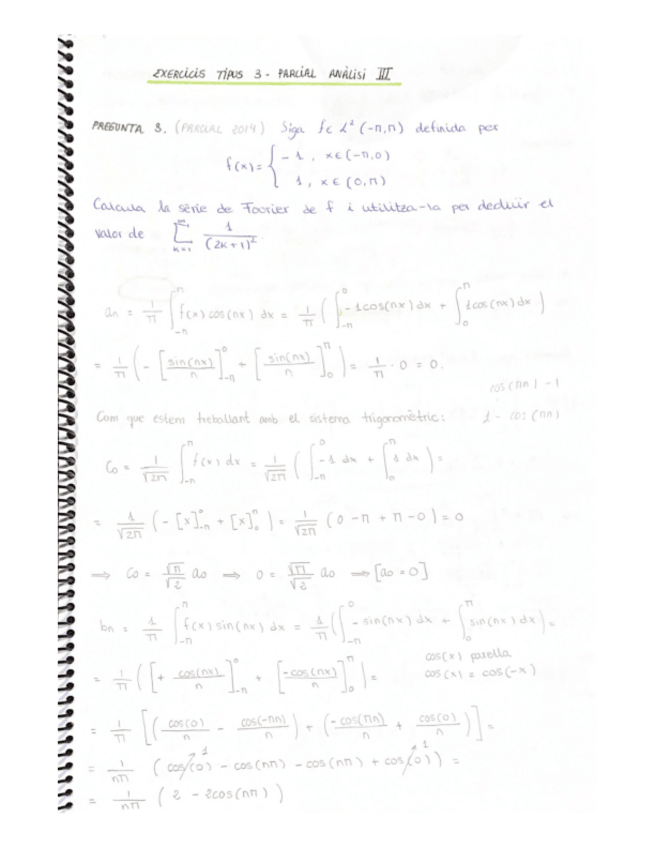 EXERCICIS TIPUS 3 - PARCIAL ANÀLISI III
PREGUNTA 3. (PARCIAL 2014) Siga f ∈ L² (-π,π) definida per
f(x) = { -1 , x ∈ (-π,0)
1 , x ∈ (0,π)
Calcula la sèrie de Fourier de f i utilitza-la per deduïr el
valor de ∑_{k=1}^{∞} 1/(2k+1)²
an = 1/π ∫_{-π}^{π} f(x) cos(nx) dx = 1/π ( ∫_{-π}^{0} -1cos(nx) dx + ∫_{0}^{π} 1cos(nx) dx )
= 1/π ( - [ sin(nx)/n ]_{-π}^{0} + [ sin(nx)/n ]_{0}^{π} ) = 1/π · 0 = 0.
cos(πn) - 1
Com que estem treballant amb el sistema trigonomètric: 1 - cos(πn)
C0 = 1/√2π ∫_{-π}^{π} f(x) dx = 1/√2π ( ∫_{-π}^{0} -1 dx + ∫_{0}^{π} 1 dx ) =
= 1/√2π ( - [x]_{-π}^{0} + [x]_{0}^{π} ) = 1/√2π ( 0 - π + π - 0 ) = 0
⟹ C0 = √π/√2 a0 ⟹ 0 = √π/√2 a0 ⟹ [a0 = 0]
bn = 1/π ∫_{-π}^{π} f(x) sin(nx) dx = 1/π ( ∫_{-π}^{0} - sin(nx) dx + ∫_{0}^{π} sin(nx) dx ) =
cos(x) parella
= 1/π ( [ + cos(nx)/n ]_{-π}^{0} + [ -cos(nx)/n ]_{0}^{π} ) = cos(x) = cos(-x)
= 1/π [ ( cos(0)/n - cos(-πn)/n ) + ( -cos(πn)/n + cos(0)/n ) ] =
= 1/nπ ( cos(0) 1 - cos(nπ) - cos(nπ) + cos(0) 1 ) =
= 1/nπ ( 2 - 2cos(nπ) )